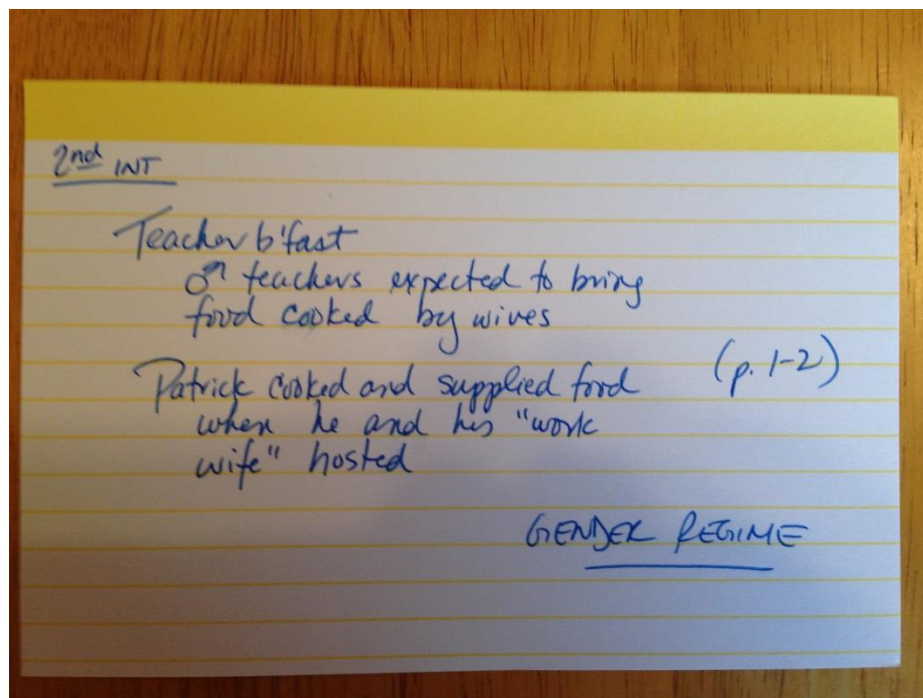 2nd INT
Teacher b'fast
♂ teachers expected to bring
food cooked by wives
(p. 1-2)
Patrick cooked and supplied food
when he and his "work
wife" hosted
GENDER REGIME